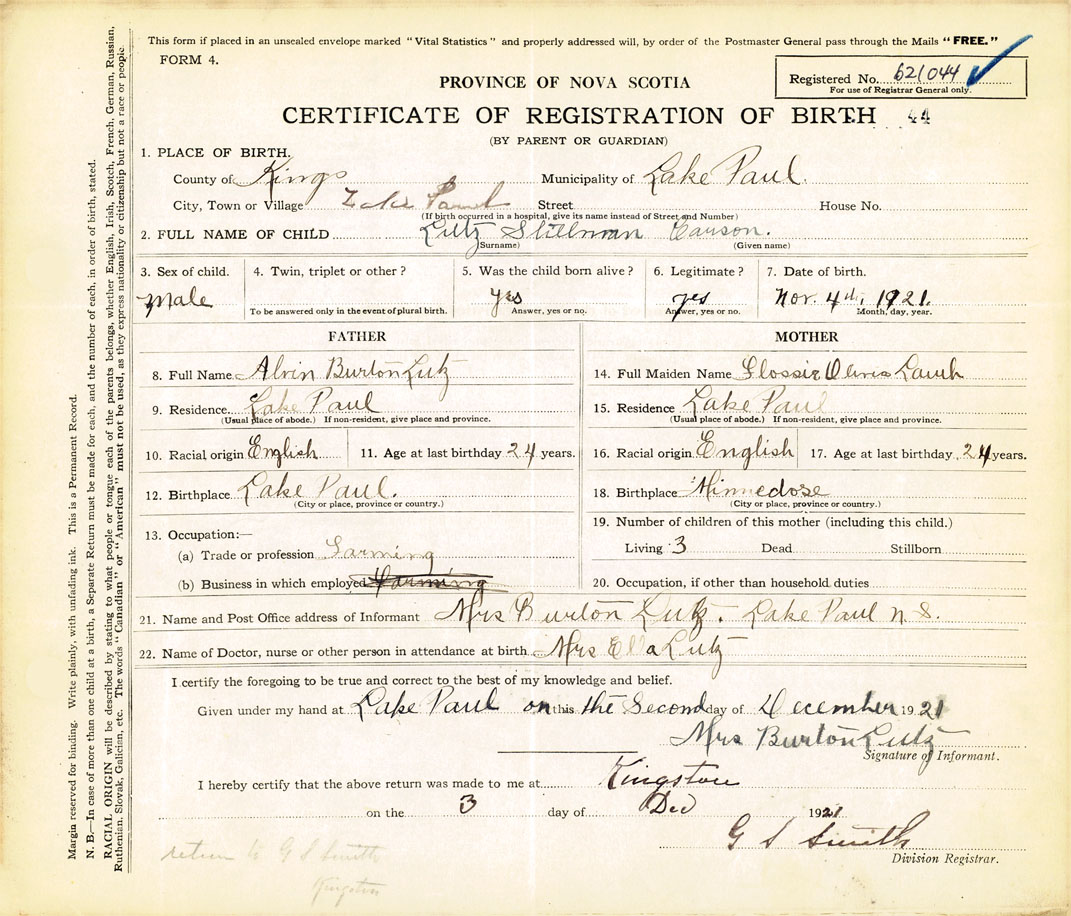 This form if placed in an unsealed envelope marked "Vital Statistics" and properly addressed will, by order of the Postmaster General pass through the Mails "FREE."
FORM 4.
Registered No. 621044
For use of Registrar General only.
PROVINCE OF NOVA SCOTIA
CERTIFICATE OF REGISTRATION OF BIRTH 44
(BY PARENT OR GUARDIAN)
1. PLACE OF BIRTH.
County of Kings Municipality of Lake Paul.
City, Town or Village Lake Paul Street House No.
(If birth occurred in a hospital, give its name instead of Street and Number)
2. FULL NAME OF CHILD Lutz Stillman Carson.
(Surname) (Given name)
3. Sex of child. 4. Twin, triplet or other? 5. Was the child born alive? 6. Legitimate? 7. Date of birth.
Male yes yes Nov. 4th, 1921.
To be answered only in the event of plural birth. Answer, yes or no. Answer, yes or no. Month, day, year.
FATHER
8. Full Name Alvin Burton Lutz
9. Residence Lake Paul
(Usual place of abode.) If non-resident, give place and province.
10. Racial origin English 11. Age at last birthday 24 years.
12. Birthplace Lake Paul.
(City or place, province or country.)
13. Occupation:—
(a) Trade or profession Farming
(b) Business in which employed Farming
MOTHER
14. Full Maiden Name Flossie Olivia Lamb
15. Residence Lake Paul
(Usual place of abode.) If non-resident, give place and province.
16. Racial origin English 17. Age at last birthday 24 years.
18. Birthplace Minnedose
(City or place, province or country.)
19. Number of children of this mother (including this child.)
Living 3 Dead Stillborn
20. Occupation, if other than household duties
21. Name and Post Office address of Informant Mrs Burton Lutz. Lake Paul N.S.
22. Name of Doctor, nurse or other person in attendance at birth Mrs Ella Lutz
I certify the foregoing to be true and correct to the best of my knowledge and belief.
Given under my hand at Lake Paul on this the Second day of December 1921
Mrs Burton Lutz
Signature of Informant.
I hereby certify that the above return was made to me at Kingston
on the 3 day of Dec 1921
G S Smith
Division Registrar.
return to G S Smith
Kingston
Margin reserved for binding. Write plainly, with unfading ink. This is a Permanent Record.
N. B.—In case of more than one child at a birth, a Separate Return must be made for each, and the number of each, in order of birth, stated.
RACIAL ORIGIN will be described by stating to what people or tongue each of the parents belongs, whether English, Irish, Scotch, French, German, Russian,
Ruthenian, Slovak, Galician, etc. The words "Canadian" or "American" must not be used, as they express nationality or citizenship but not a race or people.